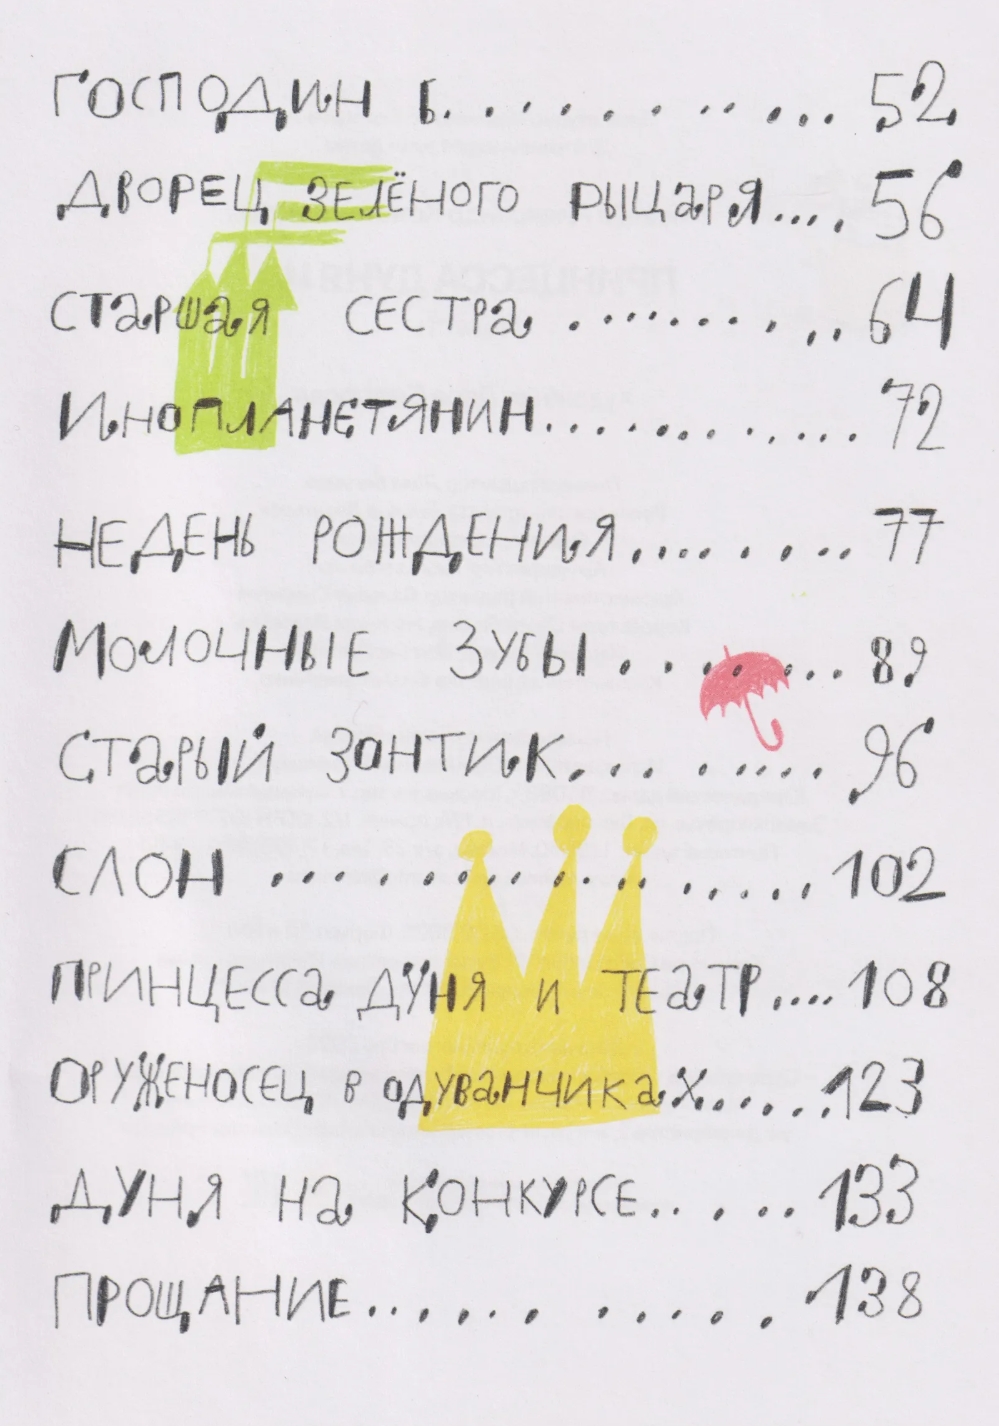 ГОСПОДИН Б............ 52
ДВОРЕЦ ЗЕЛЁНОГО РЫЦАРЯ.... 56
СТАРШАЯ СЕСТРА ............ 64
ИНОПЛАНЕТЯНИН............. 72
НЕДЕНЬ РОЖДЕНИЯ......... 77
МОЛОЧНЫЕ ЗУБЫ ......... 89
СТАРЫЙ ЗОНТИК......... 96
СЛОН .................... 102
ПРИНЦЕССА ДУНЯ И ТЕАТР.... 108
ОРУЖЕНОСЕЦ В ОДУВАНЧИКАХ...... 123
ДУНЯ НА КОНКУРСЕ...... 133
ПРОЩАНИЕ............ 138